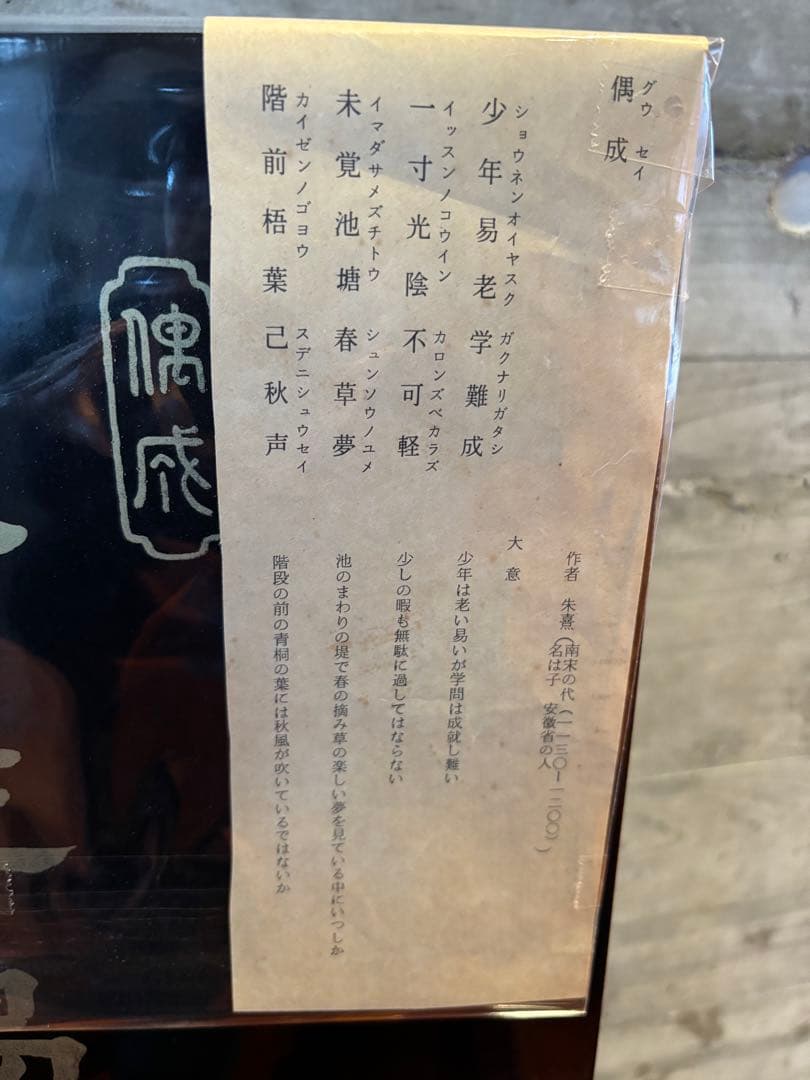 グウ セイ
偶成
ショウネンオイヤスク ガクナリガタシ
少年易老 学難成
イッスンノコウイン カロンズベカラズ
一寸光陰 不可軽
イマダサメズチトウ シュンソウノユメ
未覚池塘 春草夢
カイゼンノゴヨウ スデニシュウセイ
階前梧葉 己秋声
作者 朱熹(南宋の代(一一三〇ー一二〇〇)
名は子 安徽省の人)
大意
少年は老い易いが学問は成就し難い
少しの暇も無駄に過してはならない
池のまわりの堤で春の摘み草の楽しい夢を見ている中にいつしか
階段の前の青桐の葉には秋風が吹いているではないか
偶成